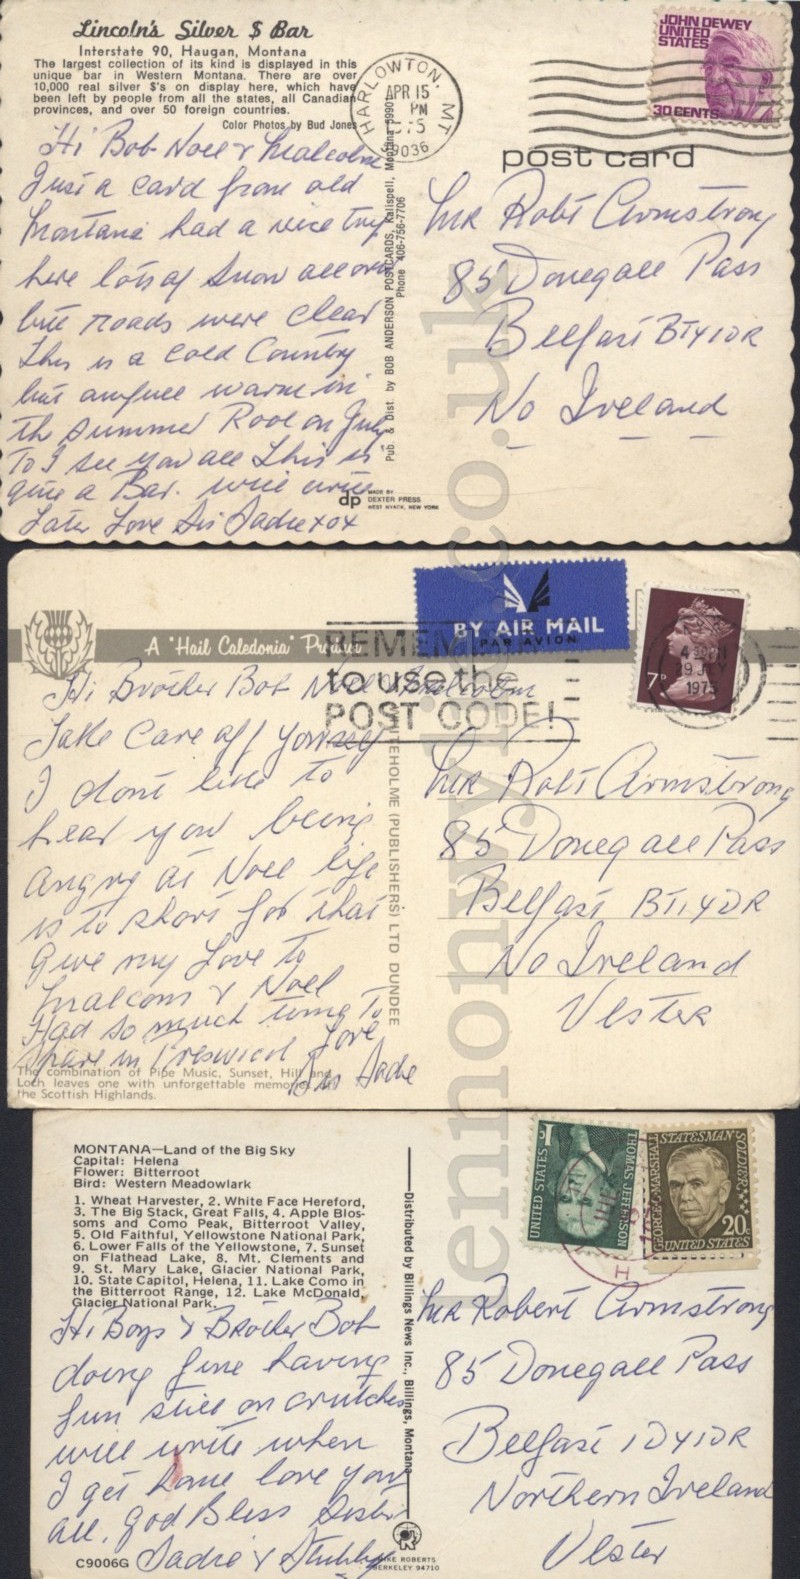 Lincoln's Silver $ Bar
Interstate 90, Haugan, Montana
The largest collection of its kind is displayed in this
unique bar in Western Montana. There are over
10,000 real silver $'s on display here, which have
been left by people from all the states, all Canadian
provinces, and over 50 foreign countries.
Color Photos by Bud Jones
Hi Bob Noel & Malcolm
Just a card from old
Montana had a nice trip
here lots of snow all over
but roads were clear
This is a cold Country
but awfull warm in
the summer Rool on July
To I see you all This is
quite a Bar. will write
Later Love Sis Sadie xox
Pub. & Dist. by BOB ANDERSON POSTCARDS, Kalispell, Montana 59901
Phone 406-756-7706
dp MADE BY
DEXTER PRESS
WEST NYACK, NEW YORK
HARLOWTON, MT
APR 15
PM
59036
JOHN DEWEY
UNITED
STATES
30 CENTS
post card
Mr Robt Armstrong
85 Donegall Pass
Belfast BT41DR
No Ireland
A "Hail Caledonia" Product
REMEMBER
to use the
POST CODE!
BY AIR MAIL
PAR AVION
7P
1975
Hi Brother Bob Noel Malcolm
Take Care off yourself
I dont like to
hear you being
angry at Noel life
is to short for that
Give my Love to
Malcom & Noel
Had so much time To
spare in Preswick Love
Sis Sadie
WHITEHOLME (PUBLISHERS) LTD DUNDEE
The combination of Pipe Music, Sunset, Hill and
Loch leaves one with unforgettable memories of
the Scottish Highlands.
Mr Robt Armstrong
85 Donegall Pass
Belfast BT14DR
No Ireland
Ulster
MONTANA—Land of the Big Sky
Capital: Helena
Flower: Bitterroot
Bird: Western Meadowlark
1. Wheat Harvester, 2. White Face Hereford,
3. The Big Stack, Great Falls, 4. Apple Blos-
soms and Como Peak, Bitterroot Valley,
5. Old Faithful, Yellowstone National Park,
6. Lower Falls of the Yellowstone, 7. Sunset
on Flathead Lake, 8. Mt. Clements and
9. St. Mary Lake, Glacier National Park,
10. State Capitol, Helena, 11. Lake Como in
the Bitterroot Range, 12. Lake McDonald,
Glacier National Park.
Hi Boys & Brother Bob
doing fine having
fun still on crutches
will write when
I get home love you
all. God Bless Sister
Sadie & Stubby
C9006G
Distributed by Billings News Inc., Billings, Montana
MIKE ROBERTS
BERKELEY 94710
1¢
UNITED STATES
THOMAS JEFFERSON
GEORGE C. MARSHALL
STATESMAN
SOLDIER
20c
UNITED STATES
Mr Robert Armstrong
85 Donegall Pass
Belfast 1D41DR
Northern Ireland
Ulster
lennonwylie.co.uk